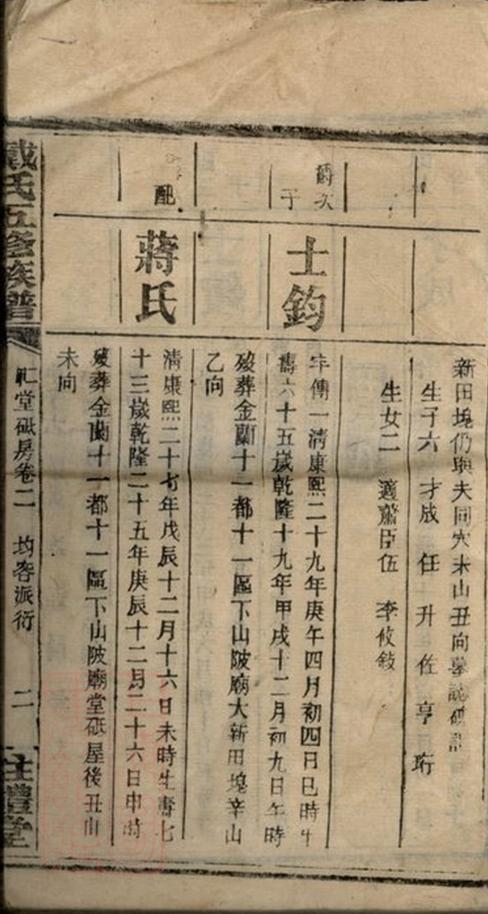 新田塊仍與夫同穴未山丑向墓誌砥
生子六 才成 任 升 佐 亨 珩
生女二 適蕭臣伍 李攸敍
爵次子
士鈞
字傳一清康熙二十九年庚午四月初四日巳時生
壽六十五歲乾隆十九年甲戌十二月初九日午時
歿葬金蘭十一都十一區下山陂廟大新田塊辛山
乙向
配
蔣氏
清康熙二十七年戊辰十二月十六日未時生壽七
十三歲乾隆二十五年庚辰十二月二十六日申時
歿葬金蘭十一都十一區下山陂廟堂砥屋後丑山
未向
戴氏五修族譜
堂砥房卷二 均容派衍 二
注禮堂